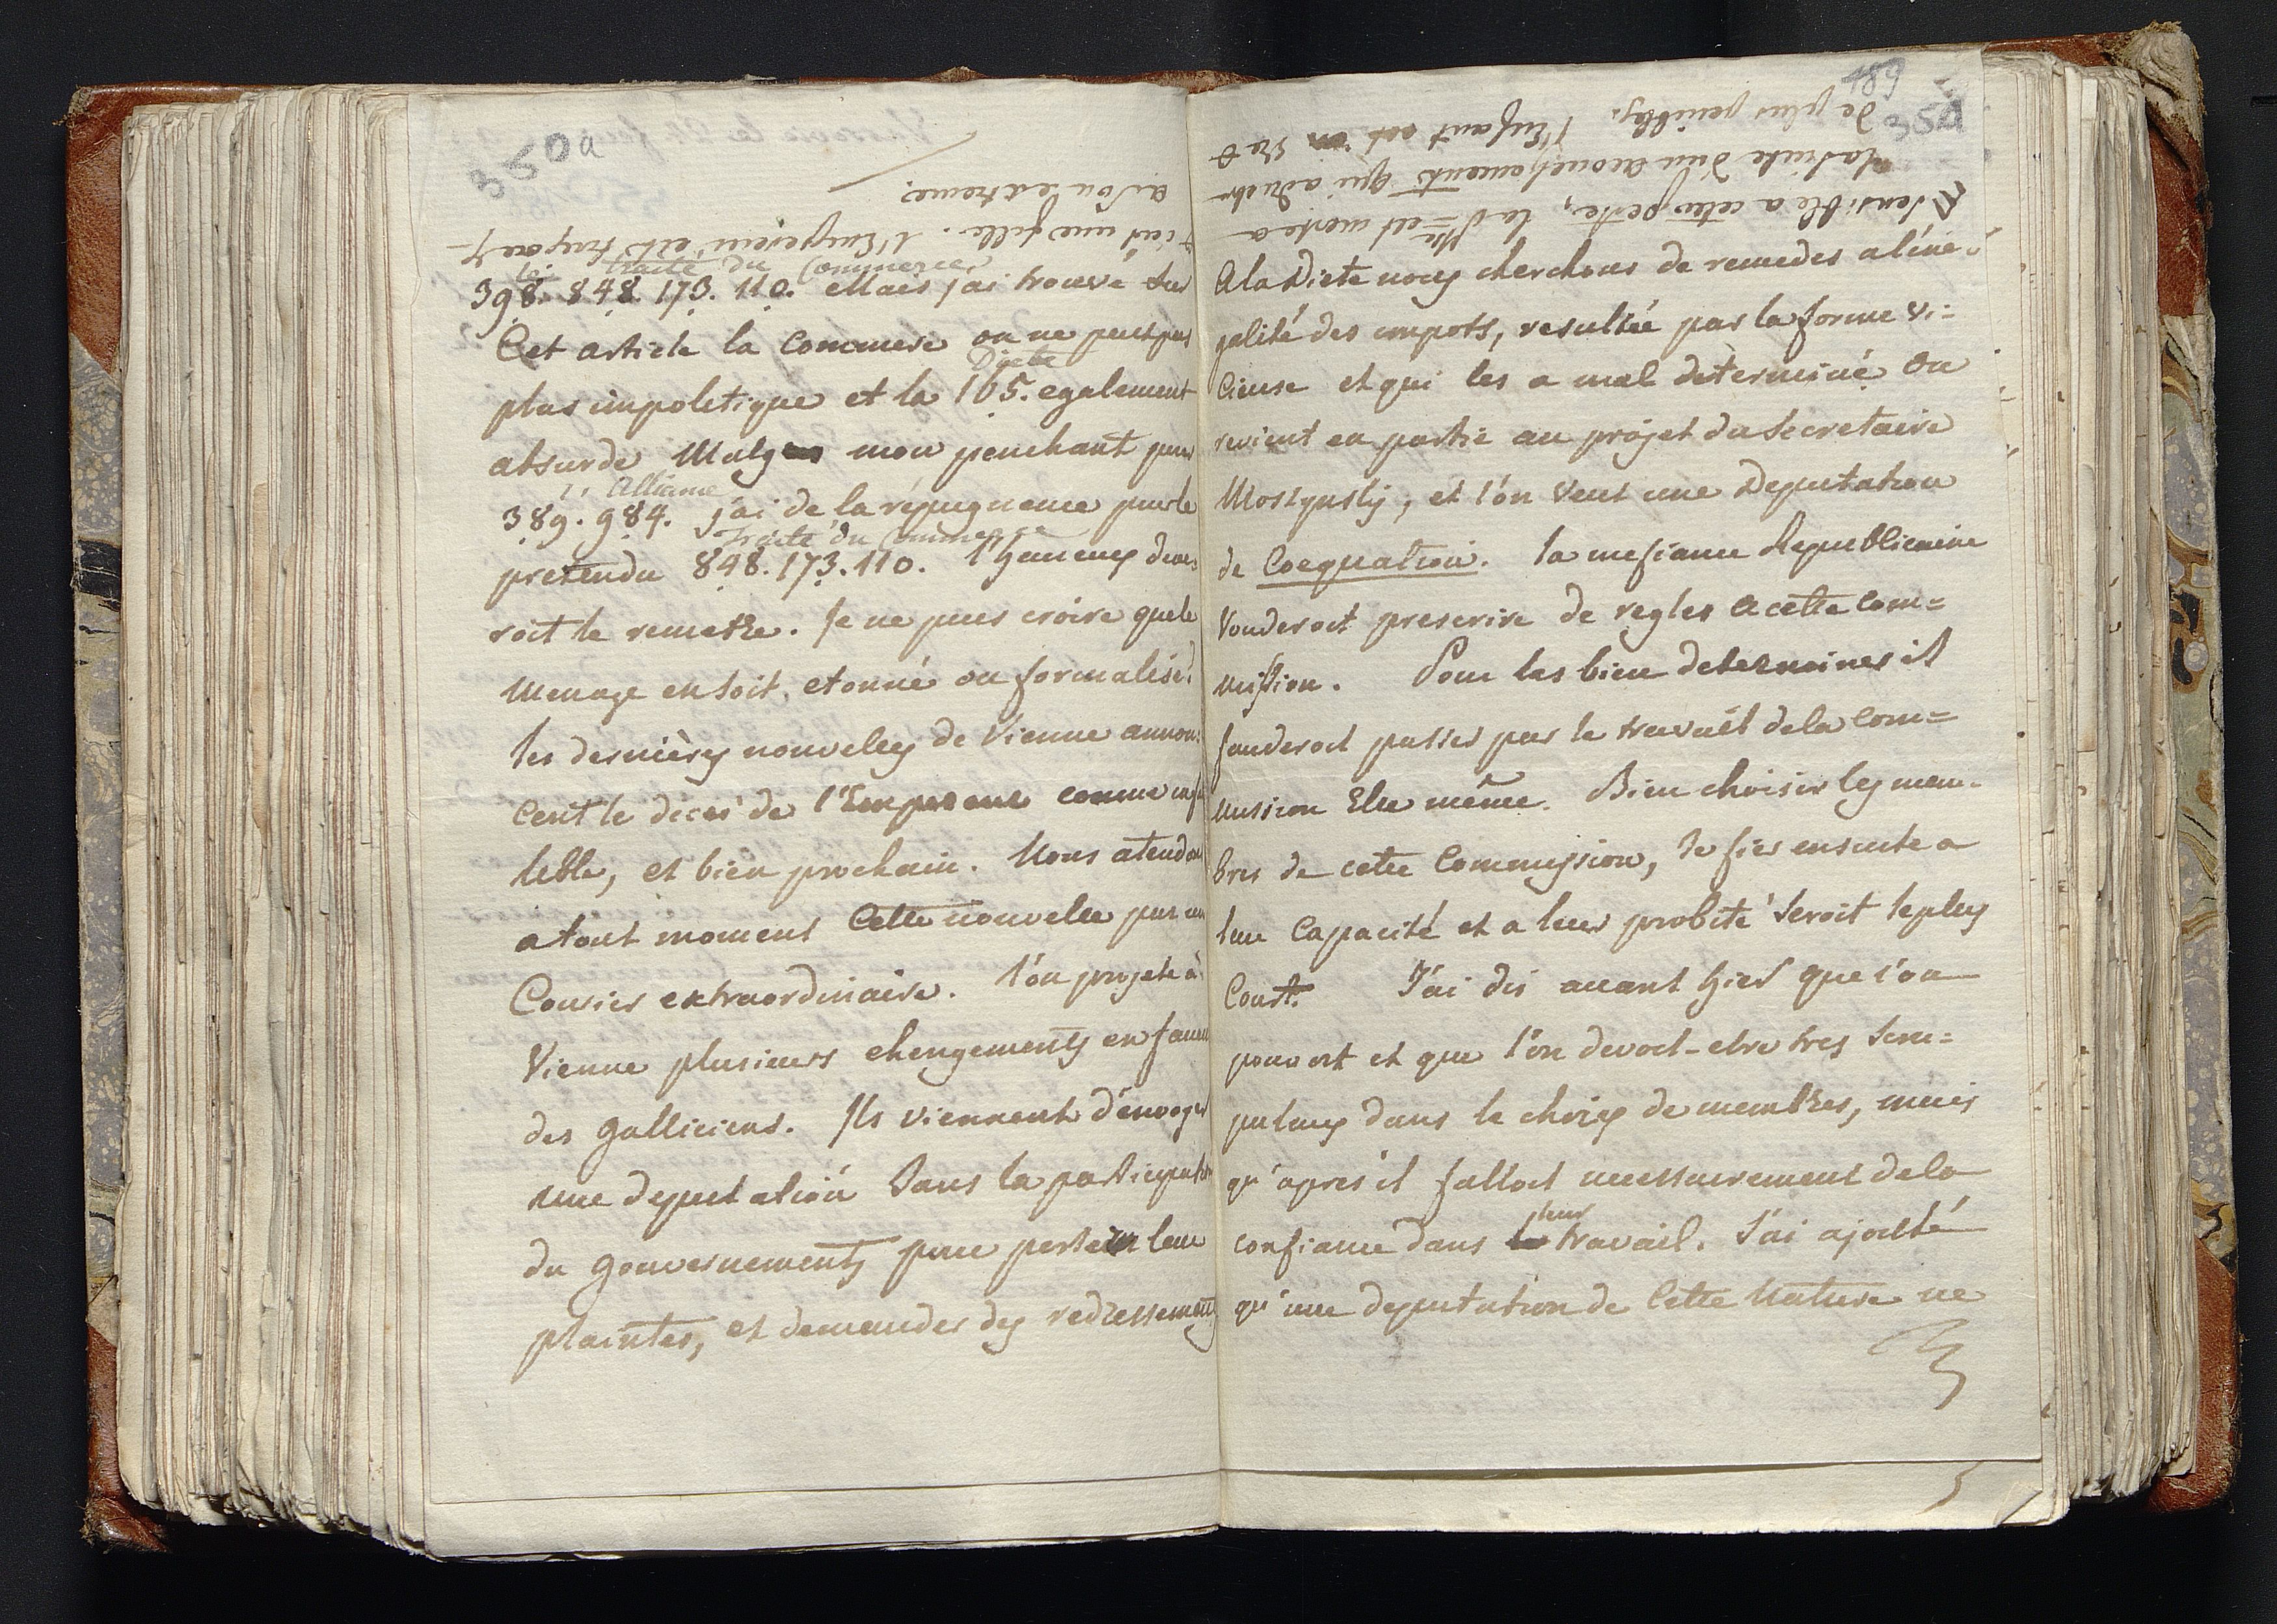 350a
est une fille. l'Empereur est trapory
a son extreme.
le traité du Commerce
398. 848. 173. 110. Mais j'ai trouvé sur
Cet article la Commere on ne peut pas
Diete
plus impoletique et la 165. egalement
absurde Malg mon penchant pour
l'Alliance
389. 984. j'ai de la répugnence pour le
Traité du Commerce
pretendu 848. 173. 110.
roit le remettre. Je ne puis croire que le
Menage en soit, etonné ou formalisé.
les dernièrs nouveles de Vienne annon:
cent le decés de l'Empereur comme infa
lible, et bien prochain. Nous atendons
a tout moment Cette nouvelle par un
Courier extraordinaire. l'on projete à
Vienne plusieurs chengements en faveur
des Galliciens. Ils viennent d'envoyer
une deputation Sans la participation
du gouvernements pour porter leur
plaintes, et demander des redressements
189
351
sensible a cette perte, la dte est morte a
la suite d'un acouchement qui a duré
de plus penibles. l'Enfant est
A la Diete nous cherchons de remedes a l'iné-
galité des impots, resultée par la forme vi=
cieuse et qui les a mal determiné On
revient en partie au projet du Secretaire
Moszynsky, et l'on veut une Deputation
de Coequation. la mefiance Republicaine
Vouderoit prescrire de regles a cette Com=
mission. Pour les bien determiner il
fauderoit passer par le travaèl de la Com=
mission Elle même. Bien choisir les mem-
bres de cette Commission, se fier ensuite a
leur Capacité et a leur probité seroit le plus
Court. J'ai dis avant hier que l'on
pouvoit et que l'on devoit-etre tres scru=
puleux dans le choix de membres, mais
qu'apres il falloit necessairement de la
leur
confiance dans travail. J'ai ajouté
qu'une deputation de Cette Nature ne